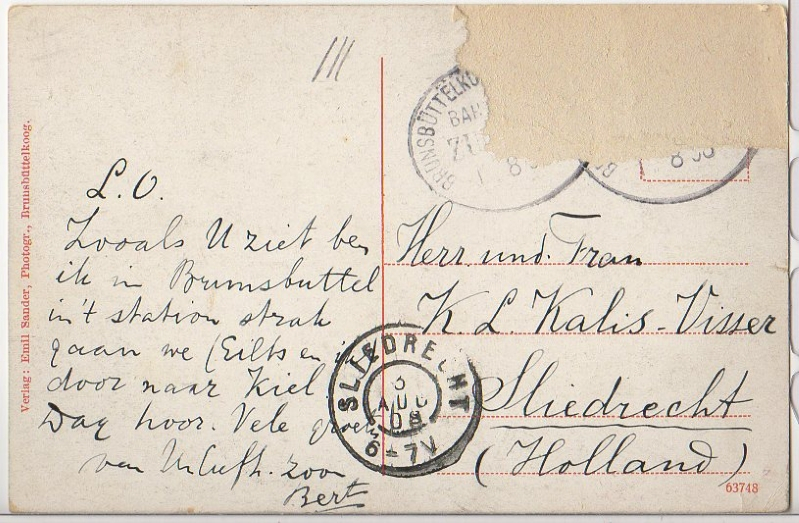 Verlag: Emil Sander, Photogr., Brunsbüttelkoog.
L.O.
Zooals U ziet ben
ik in Brunsbuttel
in't station strak
gaan we (Eilts en ik
door naar Kiel
Dag hoor. Vele groet
van Uw liefh. zoon
Bert
BRUNSBÜTTELKO
BAH
8
8
Herr und Frau
K. L. Kalis-Visser
Sliedrecht
(Holland)
SLIEDRECHT
3
AUG
08
6-7V
63748